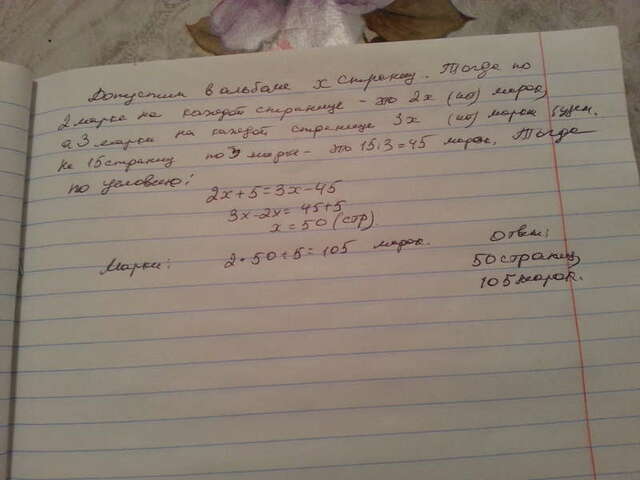 Допустим в альбоме x страниц. Тогда по
2 марке на каждой странице - это 2x (шт) марок,
а 3 марки на каждой странице 3x (шт) марок будет.
На 15 страниц по 3 марки - это 15·3=45 марок. Тогда
по условию:
2x+5=3x-45
3x-2x=45+5
x=50 (стр)
Марки: 2·50+5=105 марок.
Ответ:
50 страниц,
105 марок.